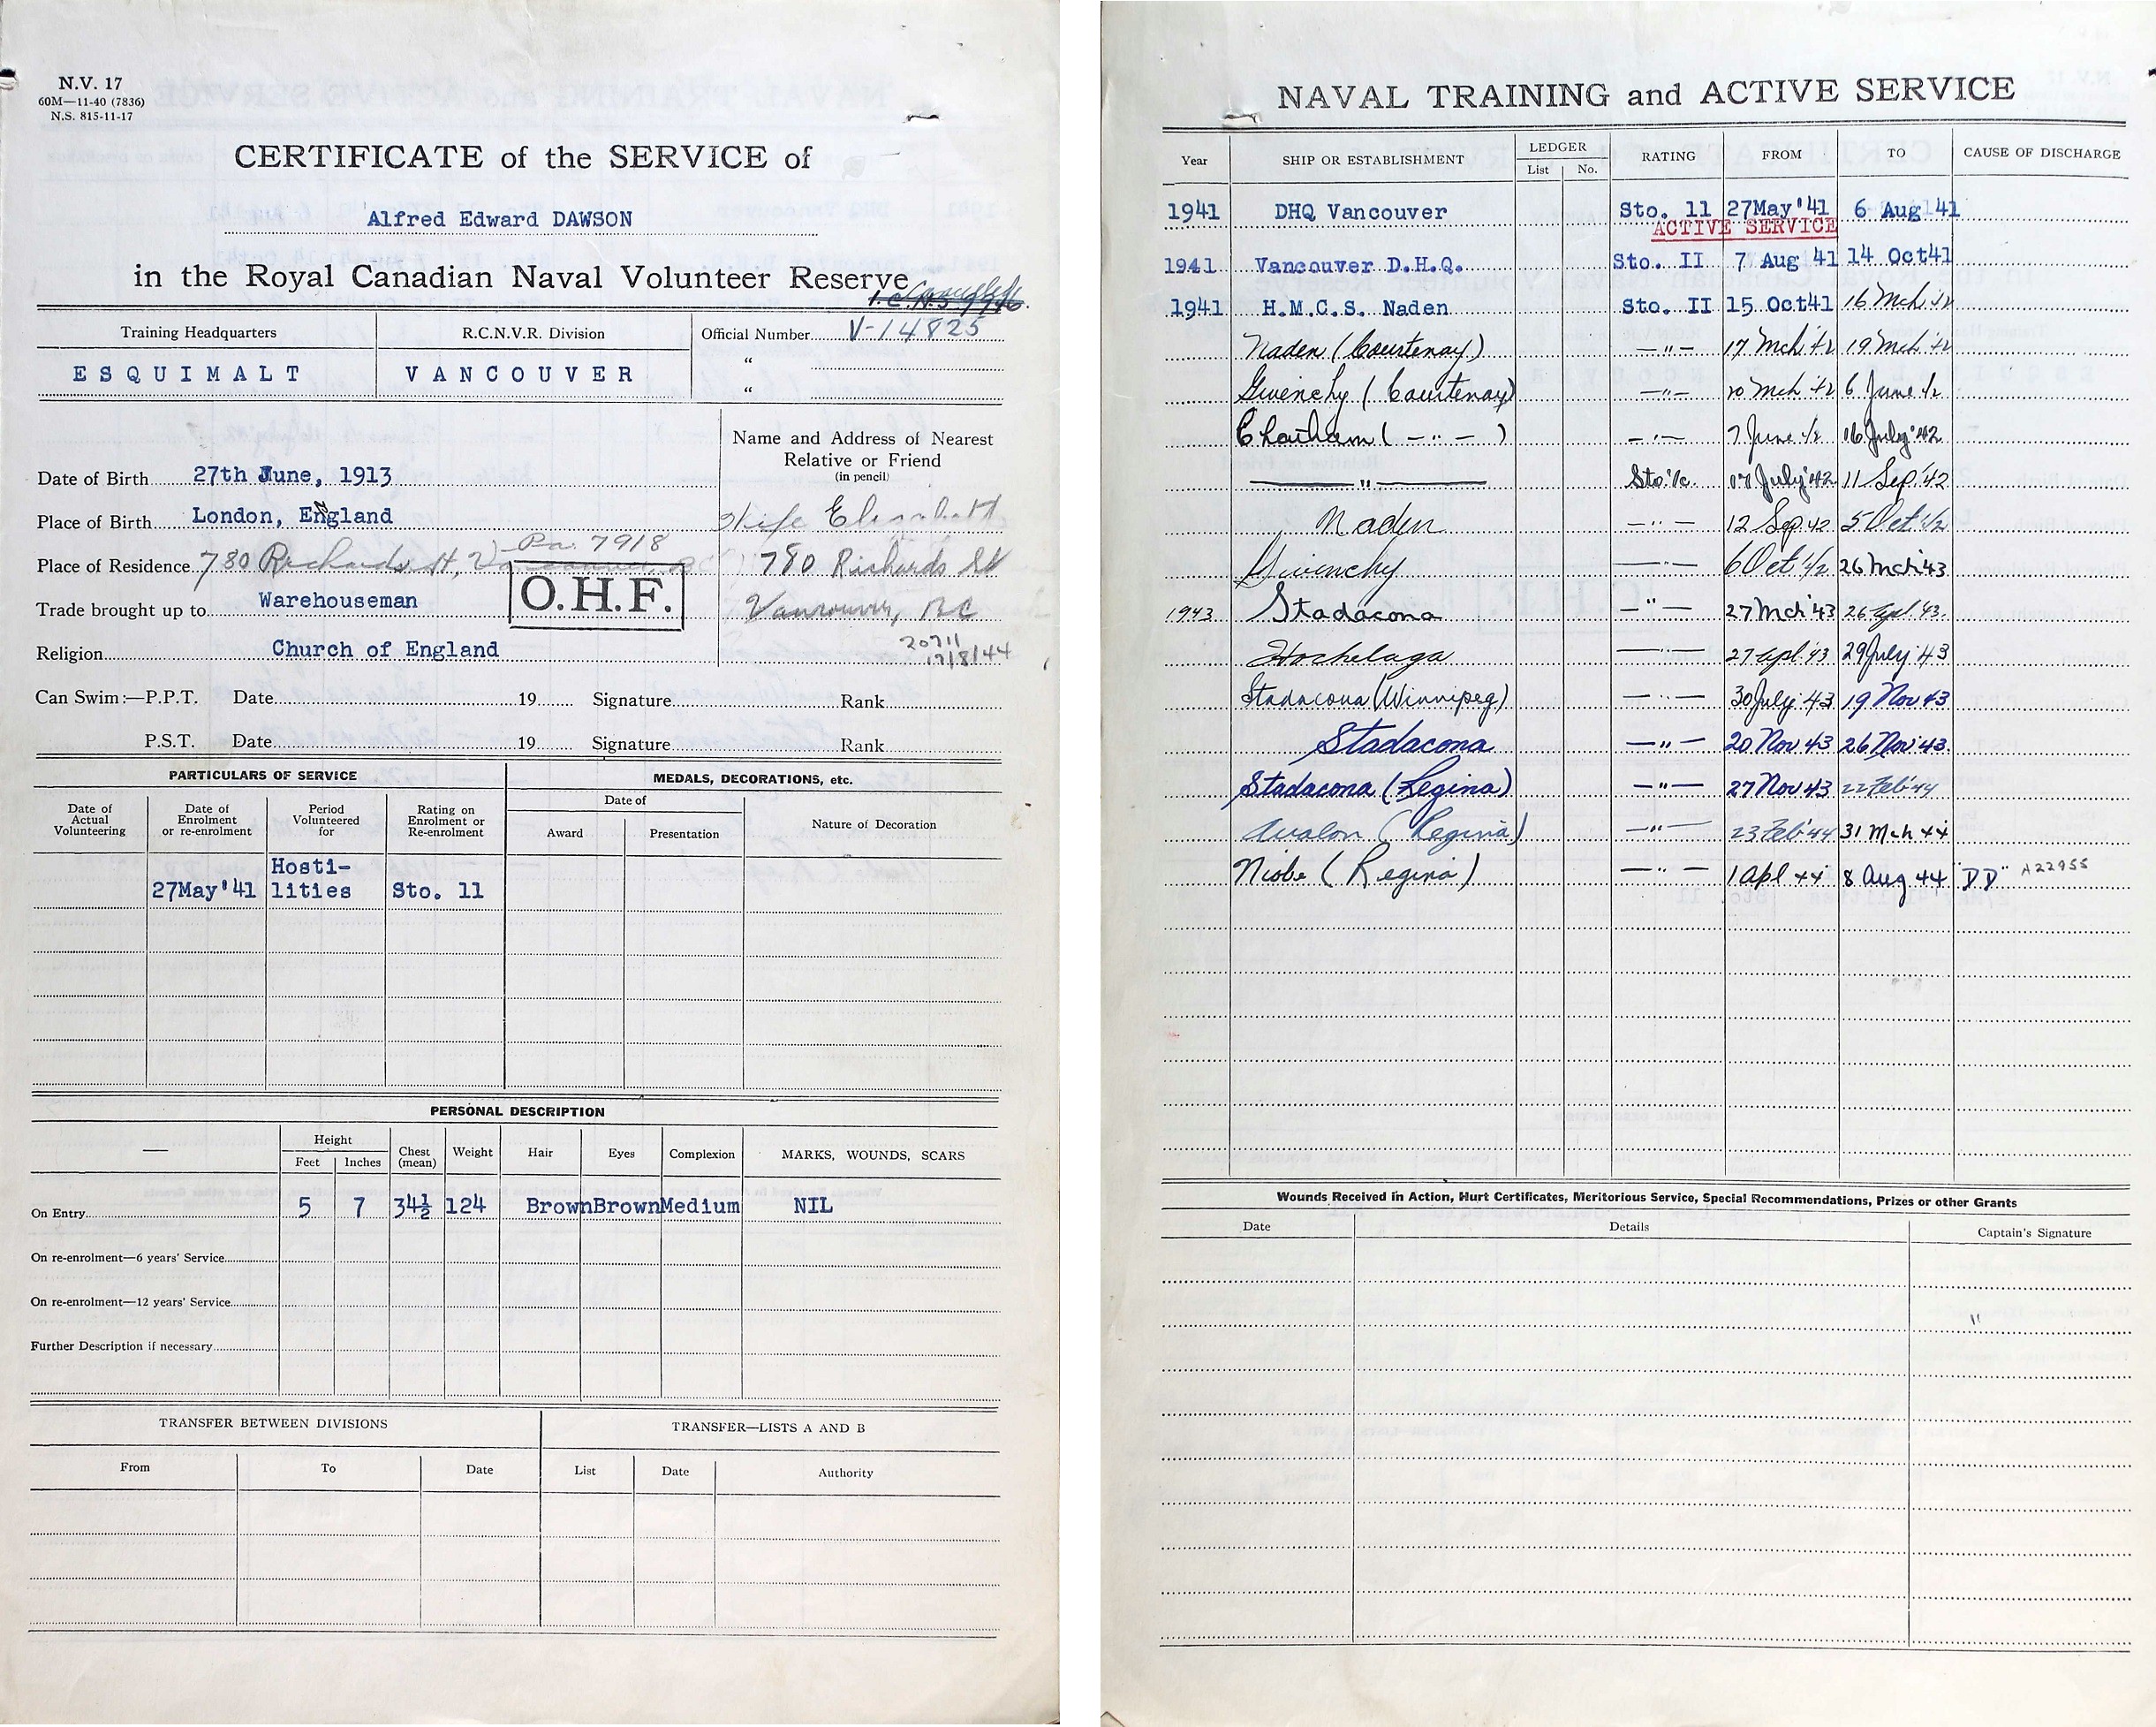 N.V. 17
60M—11-40 (7836)
N.S. 815-11-17
CERTIFICATE of the SERVICE of
Alfred Edward DAWSON
in the Royal Canadian Naval Volunteer Reserve
Training Headquarters R.C.N.V.R. Division Official Number V-14825
ESQUIMALT VANCOUVER “
“
Name and Address of Nearest
Relative or Friend
(in pencil)
Date of Birth 27th June, 1913
Place of Birth London, England Wife Elizabeth
Pa. 7918
Place of Residence 780 Richards St, Vancouver BC 780 Richards St
O.H.F.
Trade brought up to Warehouseman Vancouver, BC
Religion Church of England 20711
17/8/44
Can Swim:—P.P.T. Date 19 Signature Rank
P.S.T. Date 19 Signature Rank
PARTICULARS OF SERVICE MEDALS, DECORATIONS, etc.
Date of Actual Volunteering Date of Enrolment or re-enrolment Period Volunteered for Rating on Enrolment or Re-enrolment Date of Nature of Decoration
Award Presentation
Hosti-
27May'41 lities Sto. 11
PERSONAL DESCRIPTION
— Height Chest (mean) Weight Hair Eyes Complexion MARKS, WOUNDS, SCARS
Feet Inches
On Entry 5 7 34½ 124 Brown Brown Medium NIL
On re-enrolment—6 years' Service
On re-enrolment—12 years' Service
Further Description if necessary
TRANSFER BETWEEN DIVISIONS TRANSFER—LISTS A AND B
From To Date List Date Authority
NAVAL TRAINING and ACTIVE SERVICE
Year SHIP OR ESTABLISHMENT LEDGER RATING FROM TO CAUSE OF DISCHARGE
List No.
1941 DHQ Vancouver Sto. 11 27May'41 6 Aug 41
ACTIVE SERVICE
1941 Vancouver D.H.Q. Sto. II 7 Aug 41 14 Oct41
1941 H.M.C.S. Naden Sto. II 15 Oct41 16 Mch 42
Naden (Courtenay) —"— 17 Mch 42 19 Mch 42
Givenchy (Courtenay) —"— 20 Mch 42 6 June 42
Chatham ( —"— ) —"— 7 June 42 06 July '42
—"— Sto.1/c. 07 July '42 11 Sep '42
Naden —"— 12 Sep 42 5 Oct 42
Givenchy —"— 6 Oct 42 26 Mch 43
1943 Stadacona —"— 27 Mch '43 26 Apl. '43.
Hochelaga —"— 27 Apl '43 29 July 43
Stadacona (Winnipeg) —"— 30 July 43 19 Nov 43
Stadacona —"— 20 Nov 43 26 Nov 43.
Stadacona (Regina) —"— 27 Nov 43 22 Feb '44
Avalon (Regina) —"— 23 Feb '44 31 Mch 44
Niobe (Regina) —"— 1 Apl 44 8 Aug 44 "DD" A22955
Wounds Received in Action, Hurt Certificates, Meritorious Service, Special Recommendations, Prizes or other Grants
Date Details Captain's Signature